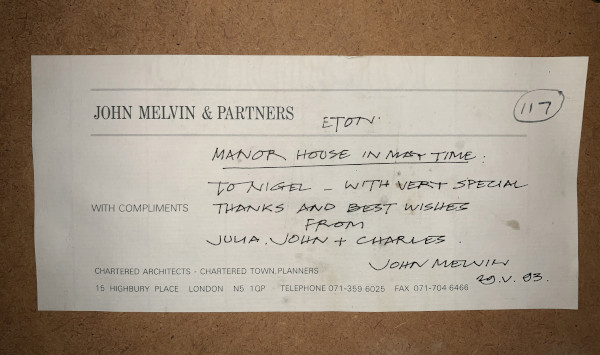 117
JOHN MELVIN & PARTNERS
ETON.
MANOR HOUSE IN MAY TIME.
TO NIGEL - WITH VERY SPECIAL
WITH COMPLIMENTS
THANKS AND BEST WISHES
FROM
JULIA, JOHN + CHARLES.
JOHN MELVIN
29.V.93.
CHARTERED ARCHITECTS - CHARTERED TOWN PLANNERS
15 HIGHBURY PLACE LONDON N5 1QP · TELEPHONE 071-359 6025 FAX 071-704 6466